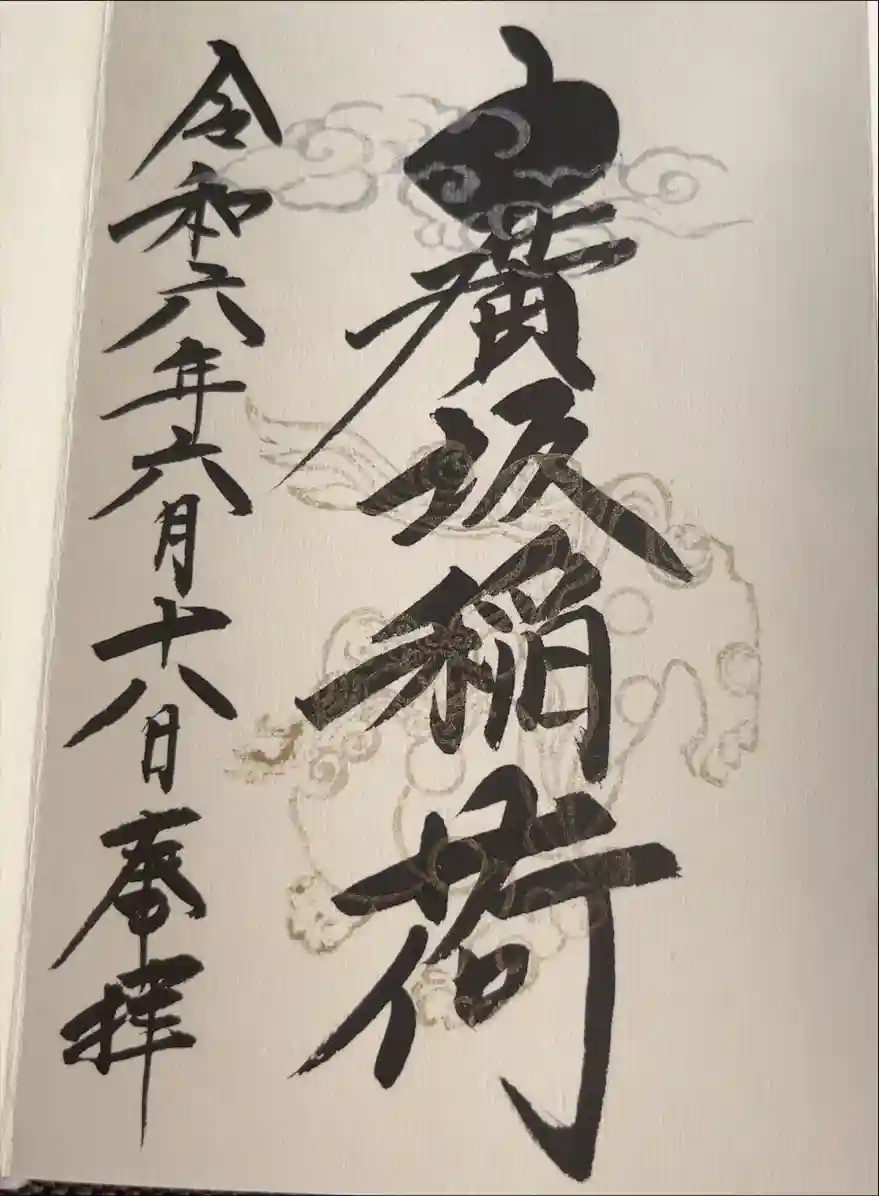 廣坂稲荷
令和六年六月十八日奉拝